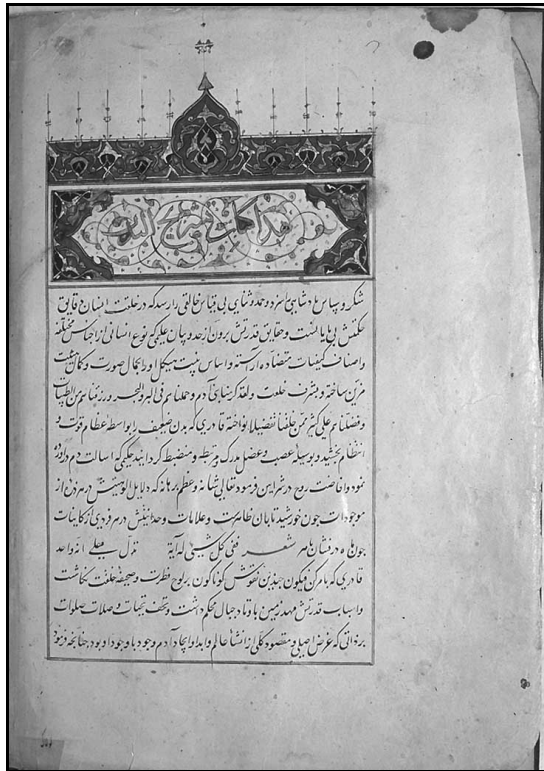 هذا كتاب تشريح البدن
شکر و سپاس پادشاهی را سزد و حمد و ثنای بی قیاس خالقی را رسد که در خلقت انسان دقایق
حکمتش بی نهایتست و حقایق قدرتش برون از حد و بیان علیمی که نوع انسانی از اجناس مختلفه
واصناف کیفیات متضاده آراسته و اساس بنیت هیکل او را بجمال صورت و کمال
مزین ساخته و بشرف خلعت ولقد کرمنا بنی آدم و حملناهم فی البر والبحر ورزقناهم من الطیبات
وفضلناهم علی کثیر ممن خلقنا تفضیلا نواخته قادری که بدن ضعیف را بواسطه عظام قوت و
انتظام بخشید و بوسیله عصب و عضل مدرک و مرتبط و منضبط کردانید حکیمی که اسالت دم در اورده
نمود و افاضت روح در شرایین فرمود تعالی شانه و عظم برهانه که دلایل الوهیتش در هر ذره از
موجودات چون خورشید تابان ظاهرست و علامات وحدانیتش در هر فردی از کاینات
چون ماه درفشان باهر شعر ففی کل شیئ له آیة تدل علی انه واحد
قادری که بامر کن فیکون چندین نقوش کوناکون بر لوح فطرت و صحیفه خلقت نکاشت
و اسباب قدرتش مهد زمین باوتاد جبال محکم داشت و تحف تحیات و صلات صلوات
بر ذاتی که غرض اصلی و مقصود کلی از انشا عالم و ابداء و ایجاد آدم وجود با وجود او بود چنانچه فرمود